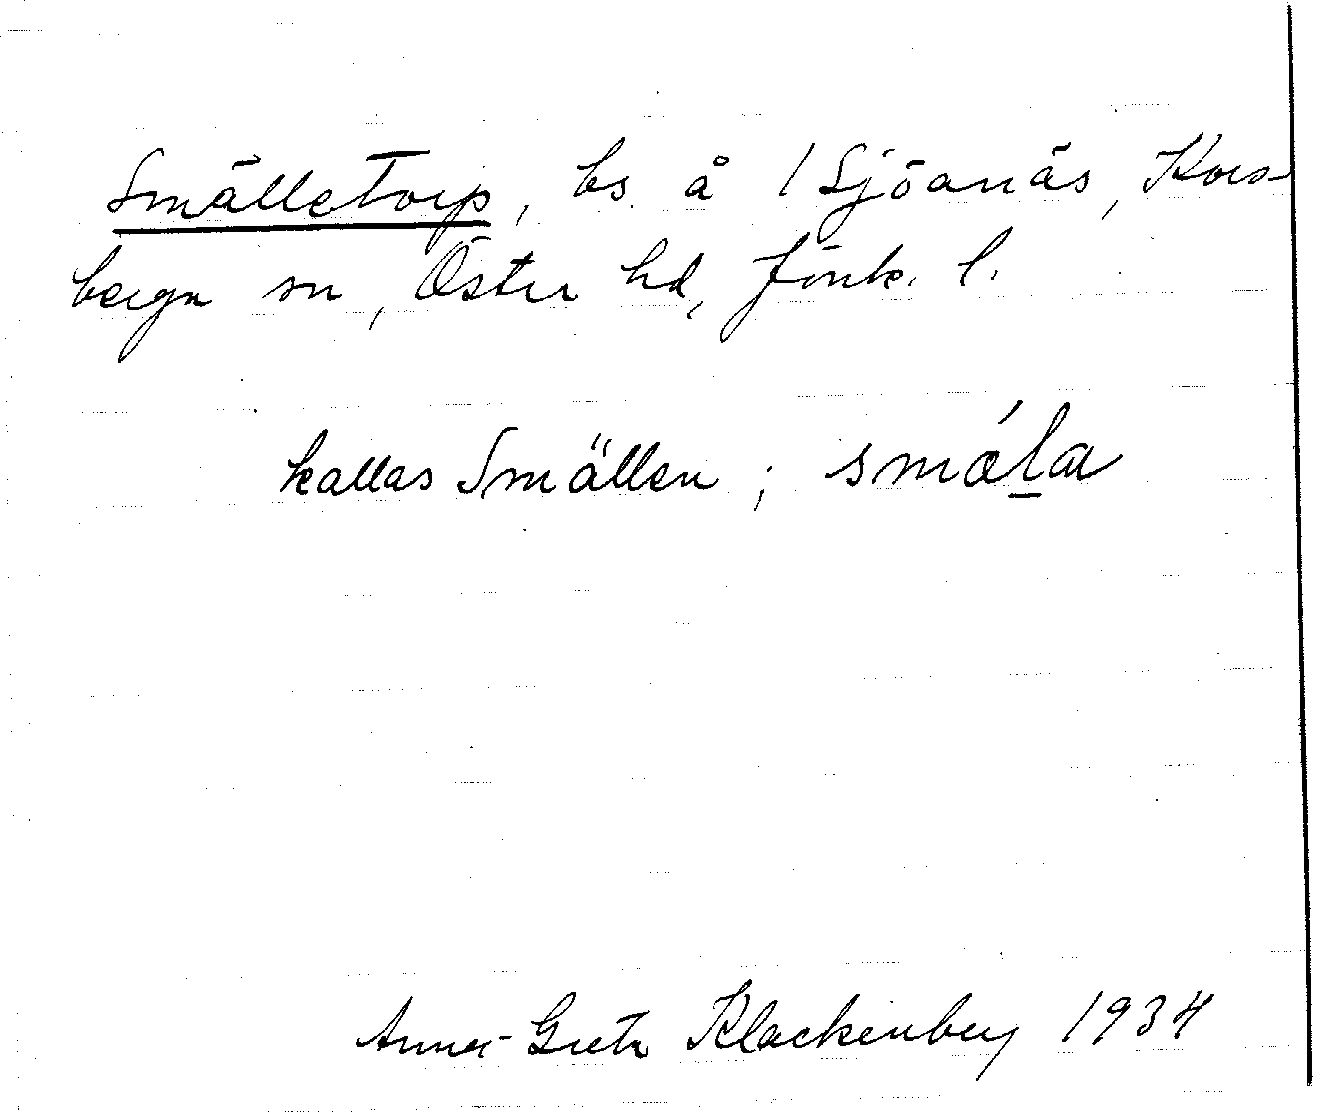 Smälletorp, bs å 1 Sjöanäs, Kors-
berga sn, Östra hd, Jönk. l.
kallas Smällen ; smǽl̠a
Anna-Greta Klackenberg 1934